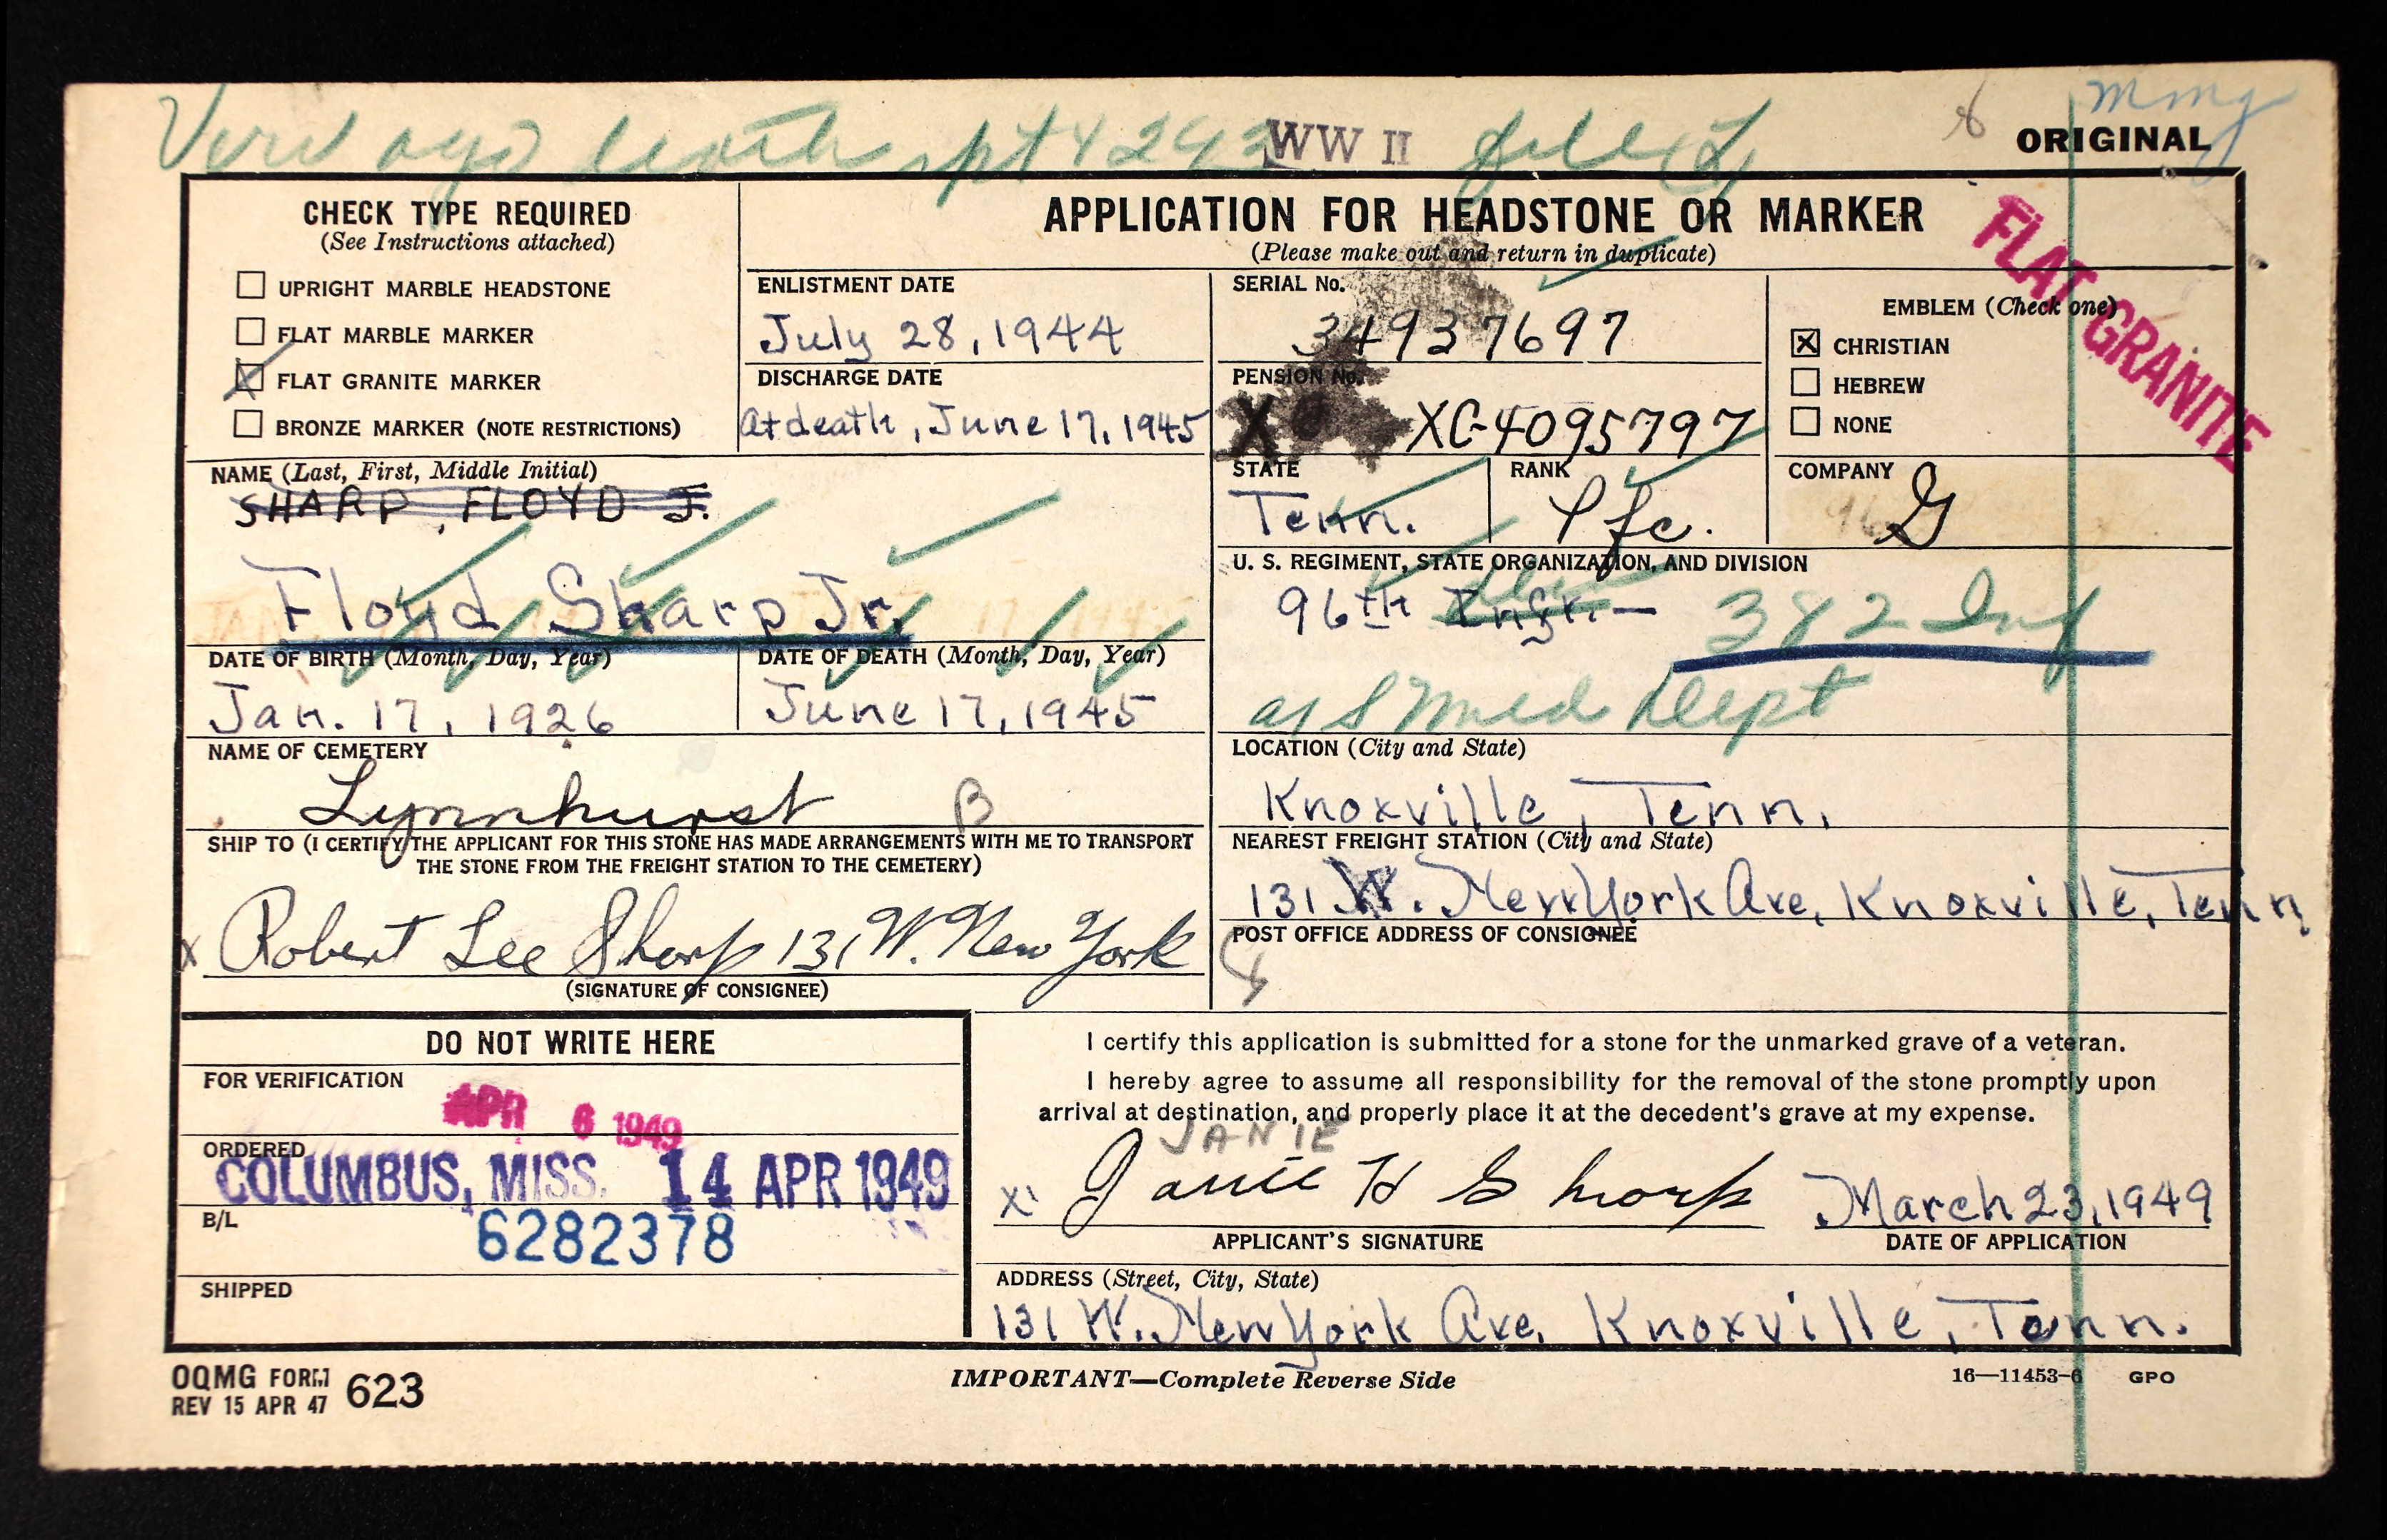 death WW II file
ORIGINAL
CHECK TYPE REQUIRED
(See Instructions attached)
UPRIGHT MARBLE HEADSTONE
FLAT MARBLE MARKER
X FLAT GRANITE MARKER
BRONZE MARKER (NOTE RESTRICTIONS)
APPLICATION FOR HEADSTONE OR MARKER
(Please make out and return in duplicate)
FLAT GRANITE
ENLISTMENT DATE
July 28, 1944
DISCHARGE DATE
At death, June 17, 1945
SERIAL No.
34937697
PENSION No.
X XC-4095797
EMBLEM (Check one)
X CHRISTIAN
HEBREW
NONE
NAME (Last, First, Middle Initial)
SHARP, FLOYD J.
Floyd Sharp Jr.
STATE
Tenn.
RANK
Pfc.
COMPANY
G
U. S. REGIMENT, STATE ORGANIZATION, AND DIVISION
96th Div 382 Inf
asg Med Dept
DATE OF BIRTH (Month, Day, Year)
Jan. 17, 1926
DATE OF DEATH (Month, Day, Year)
June 17, 1945
NAME OF CEMETERY
Lynnhurst B
LOCATION (City and State)
Knoxville, Tenn.
SHIP TO (I CERTIFY THE APPLICANT FOR THIS STONE HAS MADE ARRANGEMENTS WITH ME TO TRANSPORT
THE STONE FROM THE FREIGHT STATION TO THE CEMETERY)
x Robert Lee Sharp 131 W. New York
(SIGNATURE OF CONSIGNEE)
NEAREST FREIGHT STATION (City and State)
131 W. New York Ave, Knoxville, Tenn.
POST OFFICE ADDRESS OF CONSIGNEE
DO NOT WRITE HERE
FOR VERIFICATION
APR 6 1949
ORDERED
COLUMBUS, MISS. 14 APR 1949
B/L
6282378
SHIPPED
I certify this application is submitted for a stone for the unmarked grave of a veteran.
I hereby agree to assume all responsibility for the removal of the stone promptly upon
arrival at destination, and properly place it at the decedent's grave at my expense.
JANIE
x Janie H Sharp March 23, 1949
APPLICANT'S SIGNATURE DATE OF APPLICATION
ADDRESS (Street, City, State)
131 W. New York Ave, Knoxville, Tenn.
OQMG FORM 623
REV 15 APR 47
IMPORTANT—Complete Reverse Side
16—11453-6 GPO